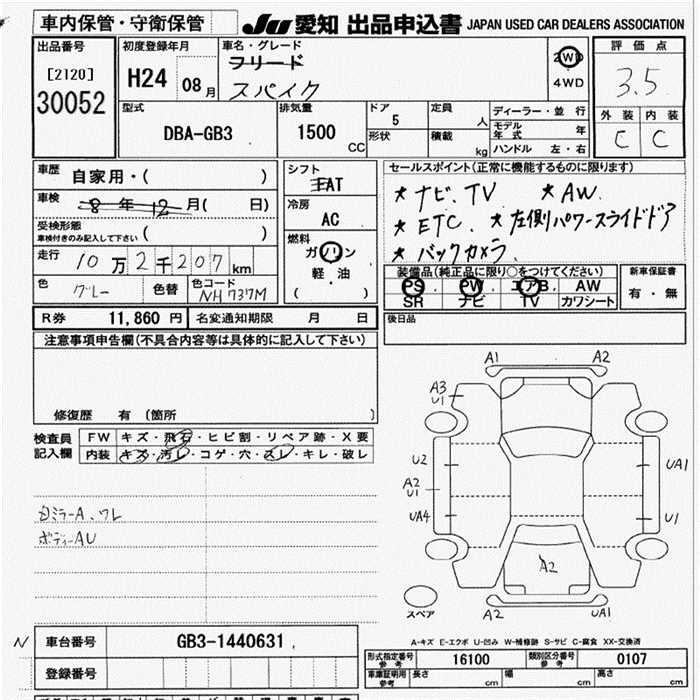 車内保管・守衛保管 JU 愛知 出品申込書 JAPAN USED CAR DEALERS ASSOCIATION
出品番号 [2120] 30052
初度登録年月 H24 08月
車名・グレード フリード スパイク
2WD 4WD
評価点 3.5
外装 C 内装 C
型式 DBA-GB3
排気量 1500 CC
ドア 5 形状
定員 人 積載 kg
ディーラー・並行
モデル年式 年
ハンドル 左・右
車歴 自家用・( )
車検 8年12月( 日)
受検形態 車検付きのみ記入して下さい ( )
走行 10万2千207km
色 グレー 色替 色コード NH737M
シフト FAT
冷房 AC
燃料 ガソリン 軽・油 ( )
セールスポイント(正常に機能するものに限ります)
★ナビ、TV ★AW
★ETC. ★左側パワースライドドア
★バックカメラ
装備品(純正品に限り○をつけてください)
PS PW エアB AW
SR ナビ TV カワシート
新車保証書 有・無
R券 11,860円 名変通知期限 月 日
後日品
注意事項申告欄(不具合内容等は具体的に記入して下さい)
修復歴 有 (箇所 )
検査員記入欄
FW キズ・飛石・ヒビ割・リペア跡・X要
内装 キズ・汚レ・コゲ・穴・スレ・キレ・破レ
ミラーA、ワレ
ボディーAU
A1 A2
A3 U1
U2 UA1
A2 U1
UA4 U1
A2
スペア A2 UA1
A-キズ E-エクボ U-凹み W-補修跡 S-サビ C-腐食 XX-交換済
N 車台番号 GB3-1440631
登録番号
形式指定番号 参考 16100 類別区分番号 参考 0107
車庫証明 参考 長さ cm 幅 cm 高さ cm